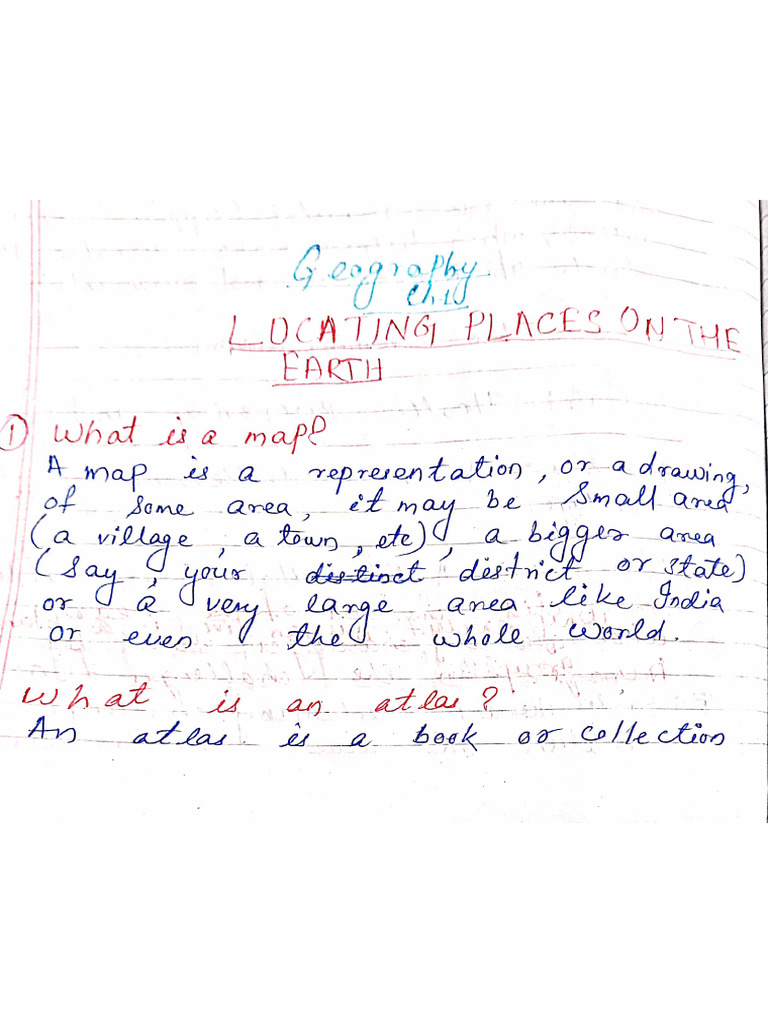 Geography
Ch-1
LOCATING PLACES ON THE
EARTH
① What is a map?
A map is a representation, or a drawing,
of some area, it may be small area
(a village, a town, etc), a bigger area
(say, your distinct district or state)
or a very large area like India
or even the whole world.
What is an atlas?
An atlas is a book or collection